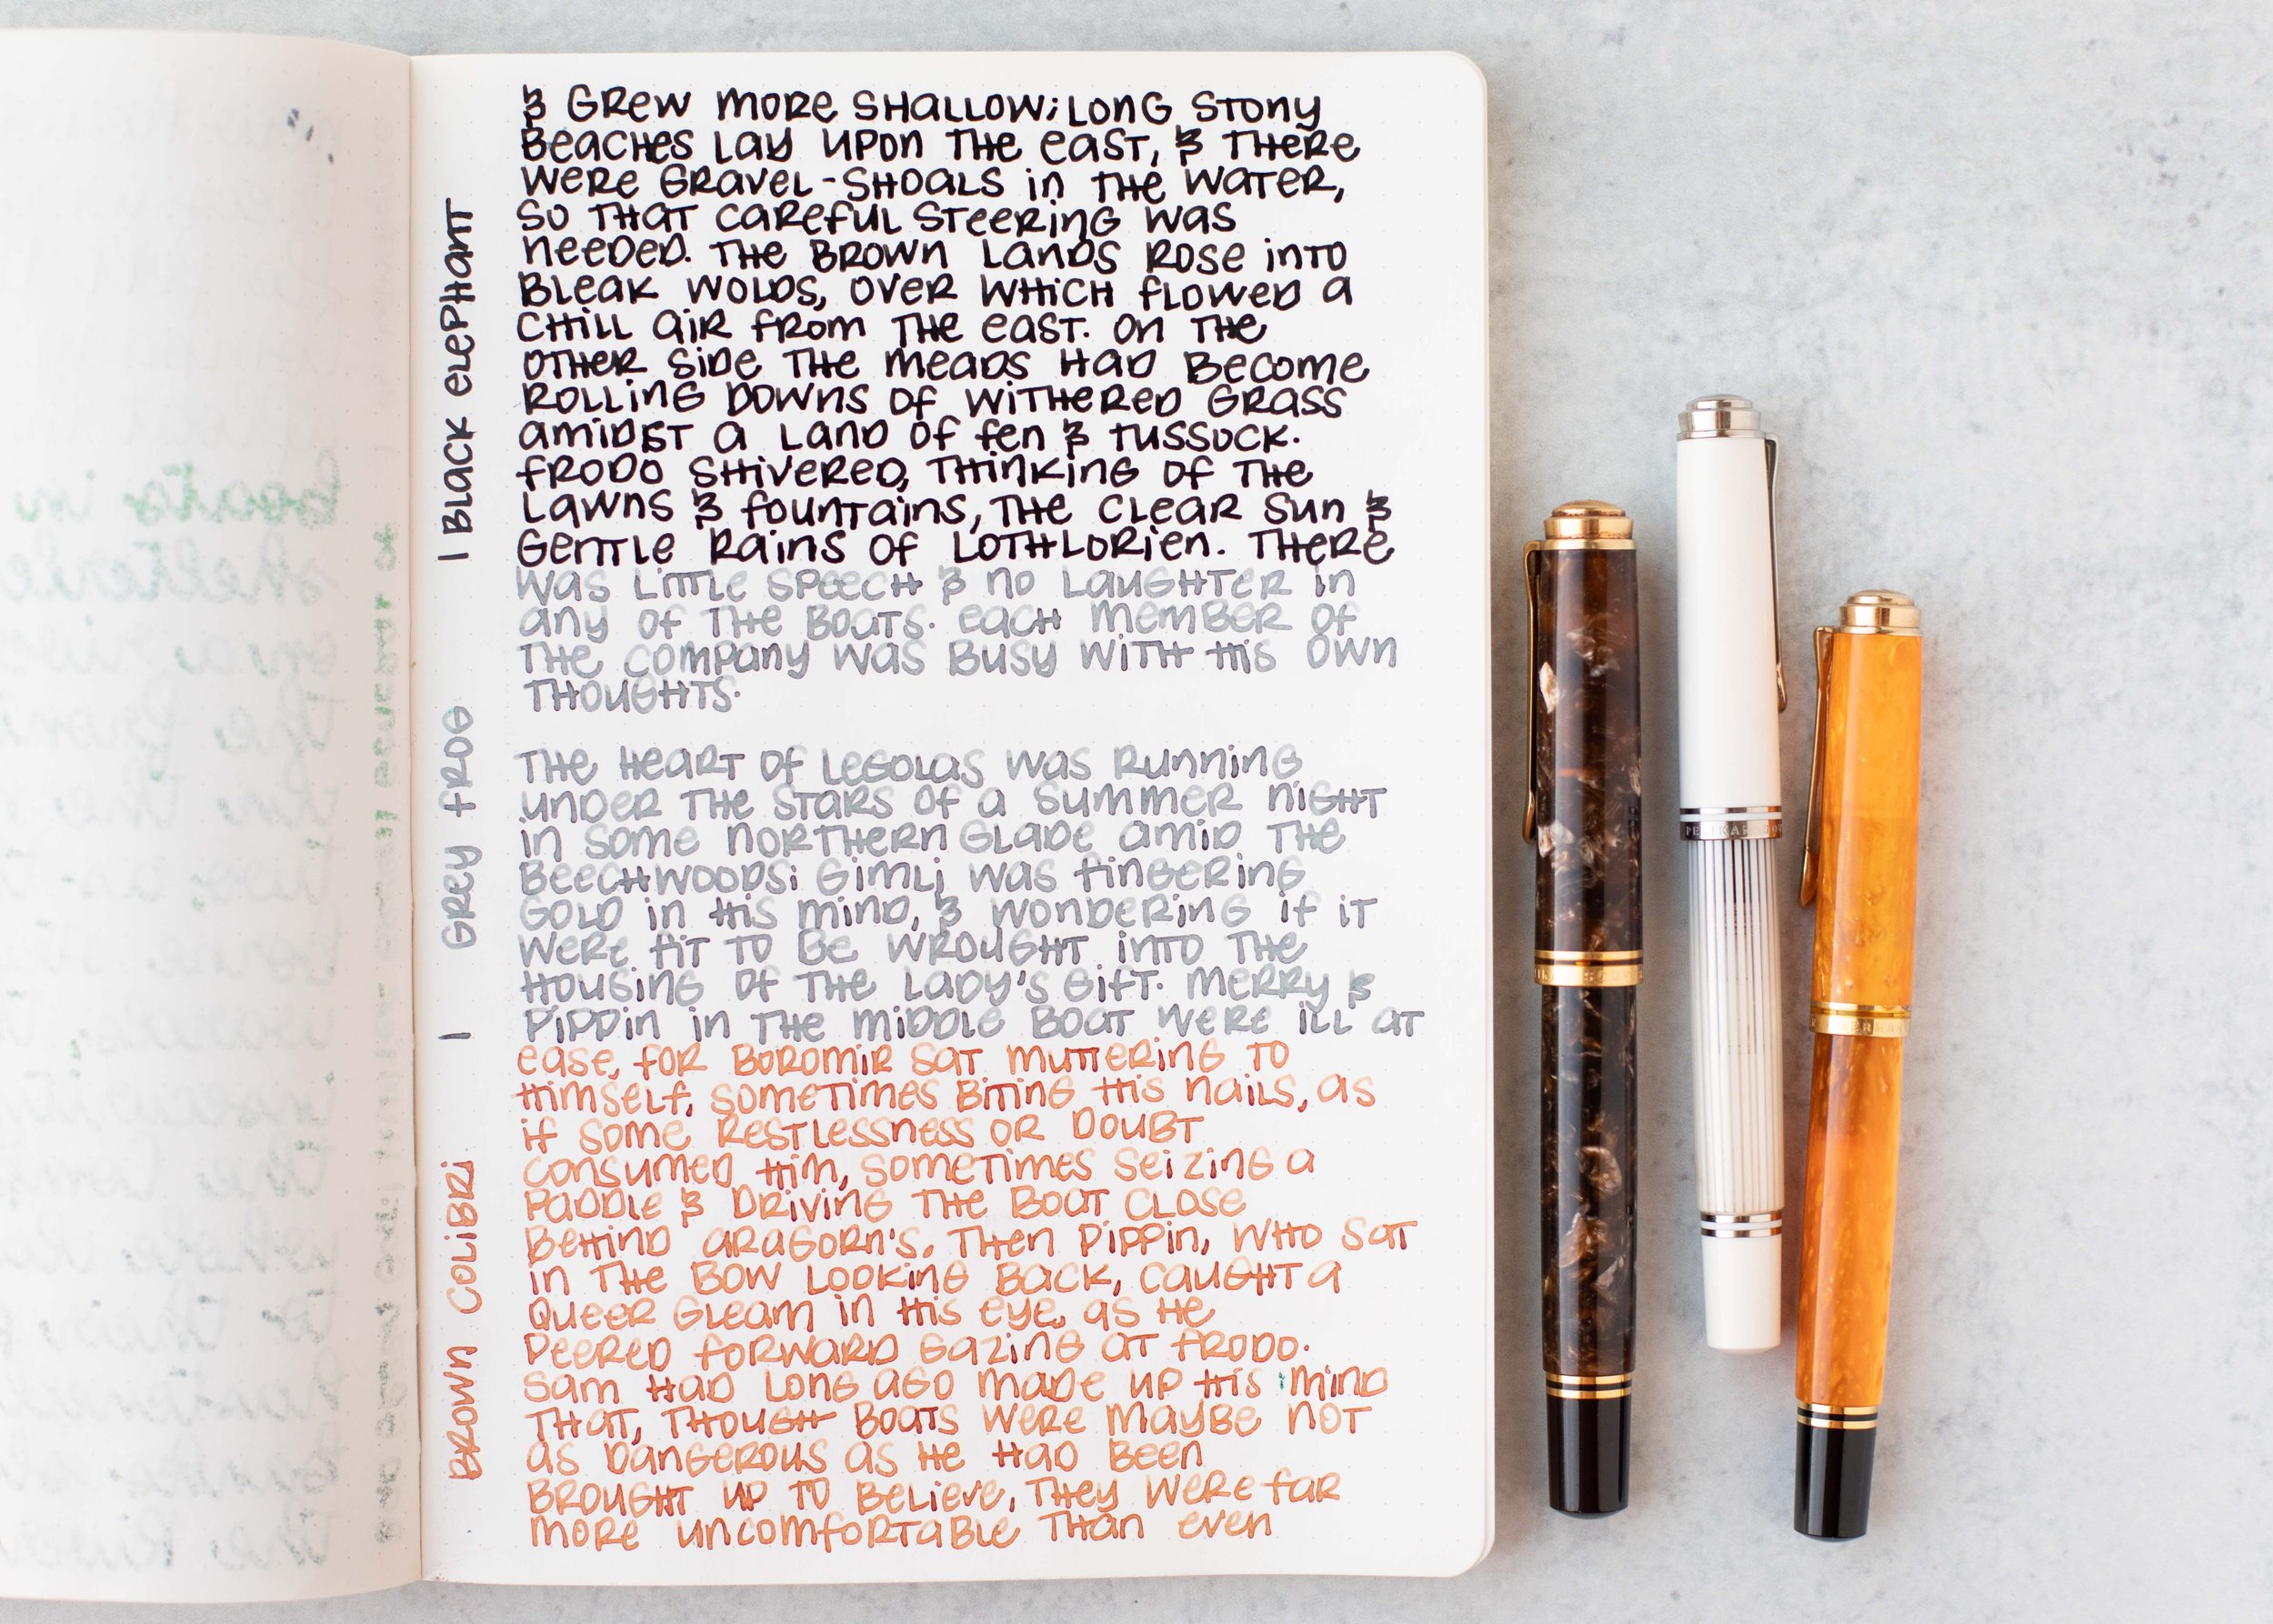 & GREW MORE SHALLOW; LONG STONY
BEACHES LAY UPON THE EAST, & THERE
WERE GRAVEL-SHOALS IN THE WATER,
SO THAT CAREFUL STEERING WAS
NEEDED. THE BROWN LANDS ROSE INTO
BLEAK WOLDS, OVER WHICH FLOWED A
CHILL AIR FROM THE EAST. ON THE
OTHER SIDE THE MEADS HAD BECOME
ROLLING DOWNS OF WITHERED GRASS
AMIDST A LAND OF FEN & TUSSOCK.
FRODO SHIVERED, THINKING OF THE
LAWNS & FOUNTAINS, THE CLEAR SUN &
GENTLE RAINS OF LOTHLORIEN. THERE
WAS LITTLE SPEECH & NO LAUGHTER IN
ANY OF THE BOATS. EACH MEMBER OF
THE COMPANY WAS BUSY WITH HIS OWN
THOUGHTS.
THE HEART OF LEGOLAS WAS RUNNING
UNDER THE STARS OF A SUMMER NIGHT
IN SOME NORTHERN GLADE AMID THE
BEECHWOODS; GIMLI WAS FINGERING
GOLD IN HIS MIND, & WONDERING IF IT
WERE FIT TO BE WROUGHT INTO THE
HOUSING OF THE LADY'S GIFT. MERRY &
PIPPIN IN THE MIDDLE BOAT WERE ILL AT
EASE, FOR BOROMIR SAT MUTTERING TO
HIMSELF, SOMETIMES BITING HIS NAILS, AS
IF SOME RESTLESSNESS OR DOUBT
CONSUMED HIM, SOMETIMES SEIZING A
PADDLE & DRIVING THE BOAT CLOSE
BEHIND ARAGORN'S. THEN PIPPIN, WHO SAT
IN THE BOW LOOKING BACK, CAUGHT A
QUEER GLEAM IN HIS EYE, AS HE
PEERED FORWARD GAZING AT FRODO.
SAM HAD LONG AGO MADE UP HIS MIND
THAT, THOUGH BOATS WERE MAYBE NOT
AS DANGEROUS AS HE HAD BEEN
BROUGHT UP TO BELIEVE, THEY WERE FAR
MORE UNCOMFORTABLE THAN EVEN
BLACK ELEPHANT
GREY FROG
BROWN COLIBRI